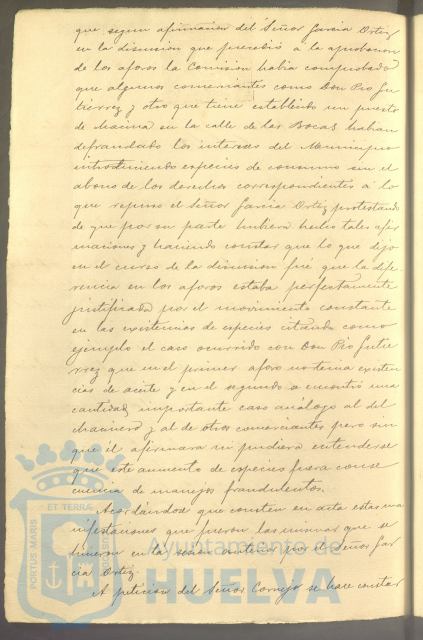 que segun afirmacion del Señor Garcia Ortiz
en la discusion que precedió a la aprobacion
de los aforos la Comision habia comprobado
que algunos comerciantes como Don Pio Gu
tierrez y otro que tiene establecido un puesto
de chacina en la calle de las Bocas habian
defraudado los intereses del Municipio
introduciendo especies de consumo sin el
abono de los derechos correspondientes á lo
que repuso el Señor Garcia Ortiz protestando
de que por su parte hubiera hecho tales afir
maciones y haciendo constar que lo que dijo
en el curso de la discusion fué que la dife
rencia en los aforos estaba perfectamente
justificada por el movimiento constante
en las existencias de especies citando como
ejemplo el caso ocurrido con Don Pio Gutie
rrez que en el primer aforo no tenia existen
cias de aceite y en el segundo se encontró una
cantidad importante caso análogo al del
chacinero y al de otros comerciantes pero sin
que él afirmara ni pudiera entenderse
que este aumento de especies fuera conse
cuencia de manejos fraudulentos.
Acordándose que consten en acta estas ma
nifestaciones que fueron las mismas que se
hicieron en la sesion anterior por el Señor Gar
cia Ortiz.
A peticion del Señor Cornejo se hace constar
PORTUS MARIS
ET TERRÆ
CUSTODIA
Ayuntamiento de
HUELVA